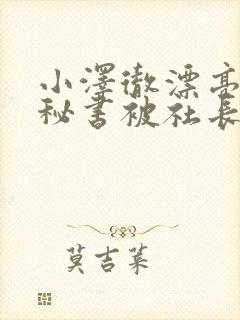 小澤徹漂亮
秘书被社長
莫吉莱